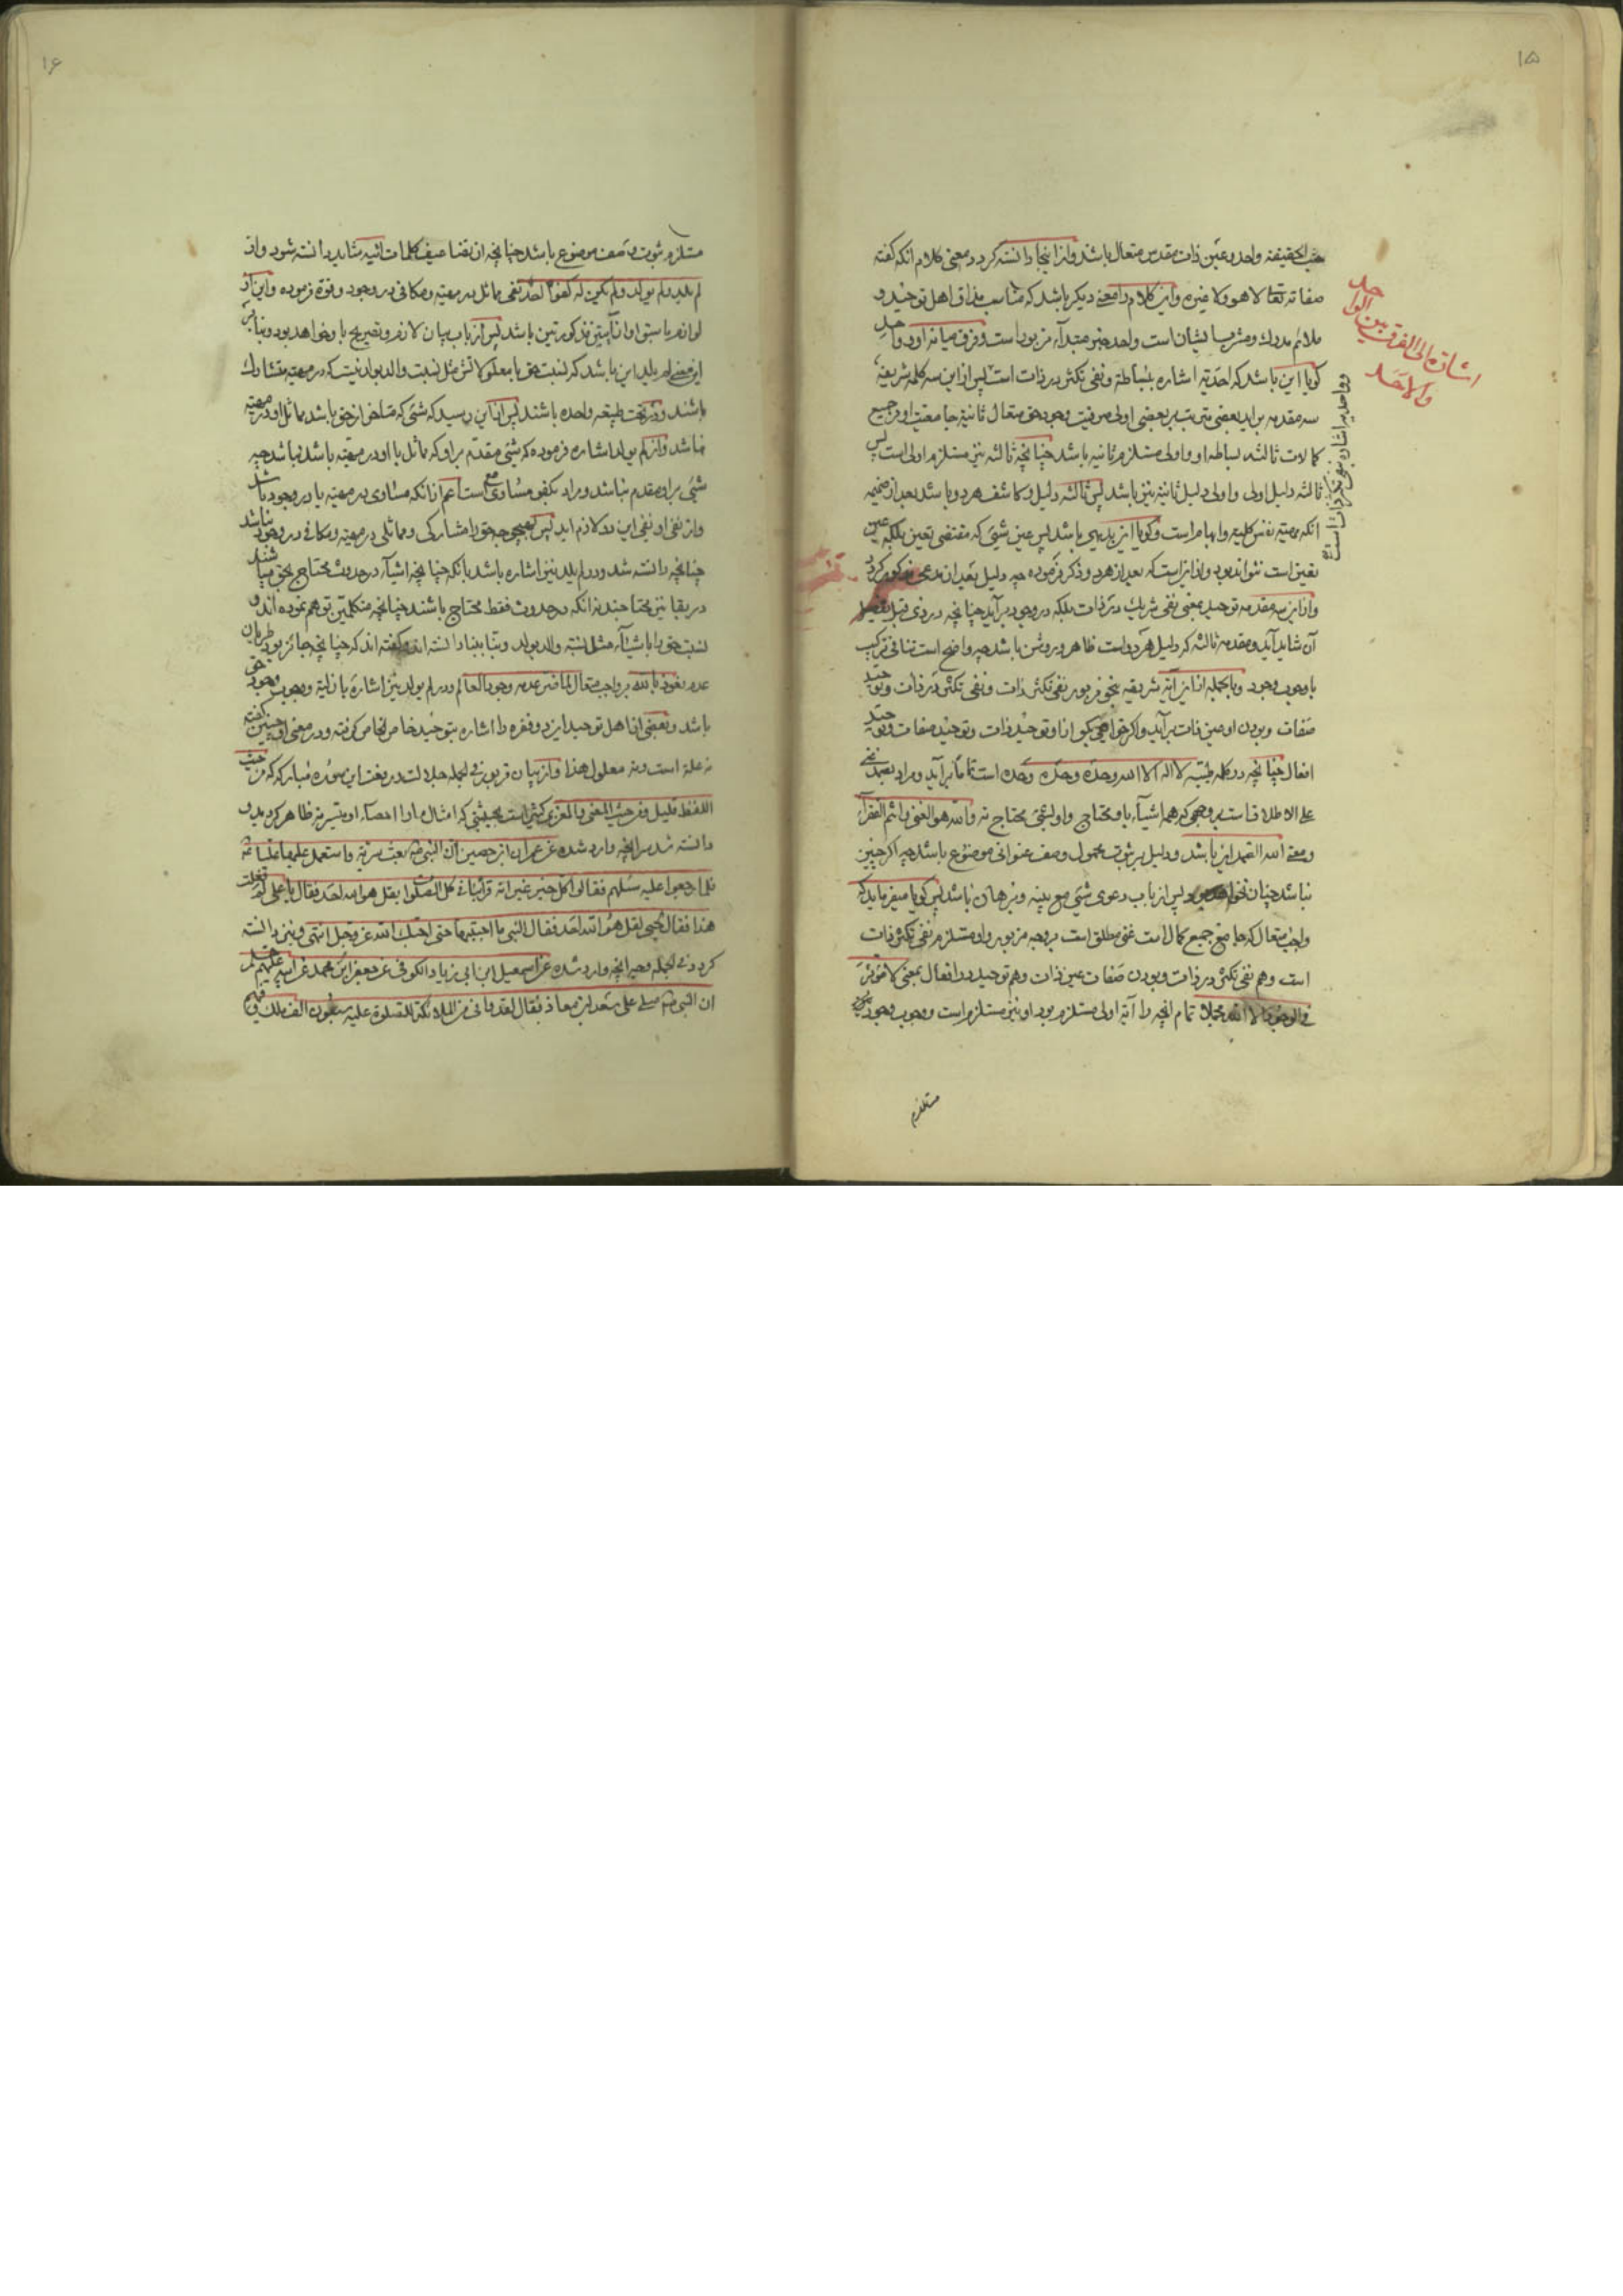 ۱۵
بحسب الحقیقة واحد وعین ذات مقدس متعال باشد واز اینجا دانسته کردد معنی کلام انکه کفته
صفاته تعالی لا هو ولا غیره واین کلام را معنی دیکر باشد که مناسب مذاق اهل توحید و
ملائم مدرک ومشرب ایشان است واحد خبر مبتدآء مزبور است وفرق میانه او و واحد
کویا این باشد که احدیّه اشاره ببساطة ونفی تکثر در ذات است پس از این سه کلمه شریفه
سه مقدمه برآید بعضی مترتب بر بعضی اولی صرفیت وجود حق متعال ثانیة جامعیت او جمیع
کمالات ثالثه بساطه او واولی مستلزم ثانیه باشد چنانچه ثالثه نیز مستلزم اولی است پس
ثالثه دلیل اولی واولی دلیل ثانیة نیز باشد پس ثالثه دلیل وکاشف هر دو باشد بعد از ضمیمه
انکه مهیّه نفس کلیه وابهام است وکویا این بدیهی باشد پس عین شیئی که مقتضی تعین بلکه عین
تعین است نتواند بود واز این است که بعد از هر دو ذکر فرموده چه دلیل بعد از مدعی مذکور کردد
واز این سه مقدمه توحید بمعنی نفی شریک در ذات بلکه در وجود برآید چنانچه در ذی قبل تفصیل
آن شاید آید ومقدمه ثالثه که دلیل هر دو است ظاهر وروشن باشد چه واضح است تنافی ترکیب
با وجوب وجود وبالجمله از این آیه شریفه بنحو مزبور نفی تکثر ذات ونفی تکثر در ذات وتوحید
صفات وبودن او عین ذات برآید واکر خواهی بکو از او توحید ذات وتوحید صفات وتوحید
افعال چنانچه در کلمه طیبّه لا اله الا الله وحده وحده وحده است تماماً برآید ومراد بصمد غنی
علی الاطلاق است بروجهی که همه اشیآء باو محتاج واو بشیئی محتاج نه والله هو الغنی وانتم الفقرآء
ومعنی الله الصمد این باشد ودلیل بر ثبوت محمول وصف عنوانی موضوع باشد چه اکر چنین
نباشد چنان نخواهد بود پس از باب دعوی شیئی مع بینه وبرهان باشد پس کویا میفرماید که
واجب متعال که جامع جمیع کمال است غنی مطلق است بروجه مزبور واو مستلزم نفی تکثر ذات
است وهم نفی تکثر در ذات وبودن صفات عین ذات وهم توحید در افعال بمعنی لا مؤثر
فی الوجود الا الله مجملا تمام انچه را آیه اولی مستلزم بود او نیز مستلزم است ووجوب وجود
مستلزم
اشارة الی الفرق بین الواحد
والاحد
و واحدیه اشاره بنفی تکثر ذات است
۱۶
مستلزم ثبوت وصف موضوع باشد چنانچه از تضاعیف کلمات اتیه شاید دانسته شود واز
لم یلد ولم یولد ولم یکن له کفواً احد نفی مماثل در مهیّه ومکافی در وجود وقوة فرموده واین از
لوازم ما سبق اواز آیتین مذکورتین باشد پس از باب بیان لازم وتصریح باو خواهد بود وبنابر
این معنی لم یلد این باشد که نسبت حق بامعلولاتش مثل نسبت والد بولد نیست که در مهیّه متشارک
باشند ودر تحت طبیعه واحده باشند پس از این رسید که شیئی که متاخر از حق باشد مماثل او در مهیّه
نباشد واز لم یولد اشاره فرموده که شیئی مقدم بر او که مماثل با او در مهیّه باشد نباشد چه
شیئی بر او مقدم نباشد ومراد بکفو مساوی مع است اعم از انکه مساوی در مهیّه یا در وجود باشد
واز نفی او نفی این دو لازم اید پس بهیچ وجه حق را مشارکی ومماثلی در مهیّه ومکافی در وجود نباشد
چنانچه دانسته شد ودر لم یلد نیز اشاره باشد بانکه چنانچه اشیآء در حدوث محتاج بحق میباشند
در بقا نیز محتاجند نه انکه در حدوث فقط محتاج باشند چنانچه متکلمین توهم نموده اند و
نسبت حق را باشیآء مثل نسبة والد بولد وبنا ببنا دانسته اند وکفته اند که چنانچه جائز بود طریان
عدم نعوذ بالله بر واجب متعال لما ضر عدمه وجود العالم ودر لم یولد نیز اشاره بازلیة ووجوب وجود حق
باشد وبعضی از اهل توحید این دو فقره را اشاره بتوحید خاص الخاص کرفته ودر معنی او چنین کفته
نه علة است ونه معلول هذا واز بیان مزبور فی الجمله جلالت ورفعت این سوره مبارکه که من حیث
اللفظ قلیل ومن حیث المعنی والمغزی کثیر است بحیثیتی که امثال ما را احصآء او متیسر نه ظاهر کردید و
دانسته شد سر انچه وارد شده عن عمران ابن حصین ان النبی ص بعث سریّة واستعمل علیها علیّا ع
فلما رجعوا علیه سئلهم فقالوا کل خیر غیر انه قرأ بنا فی کل الصلوة بقل هو الله احد فقال یا علی لم فعلت
هذا فقال لحبی لقل هو الله احد فقال النبی ما احببتها حتی احبک الله عز وجل انتهی ونیز دانسته
کردد فی الجمله وجه انچه وارد شده عن اسمعیل ابن ابی زیاد السکونی عن جعفر ابن محمد عن ابیه علیهم السلم
ان النبی ص صلی علی سعد ابن معاذ فقال لقد وافی من الملائکة للصلوة علیه سبعون الف ملک وفیهم